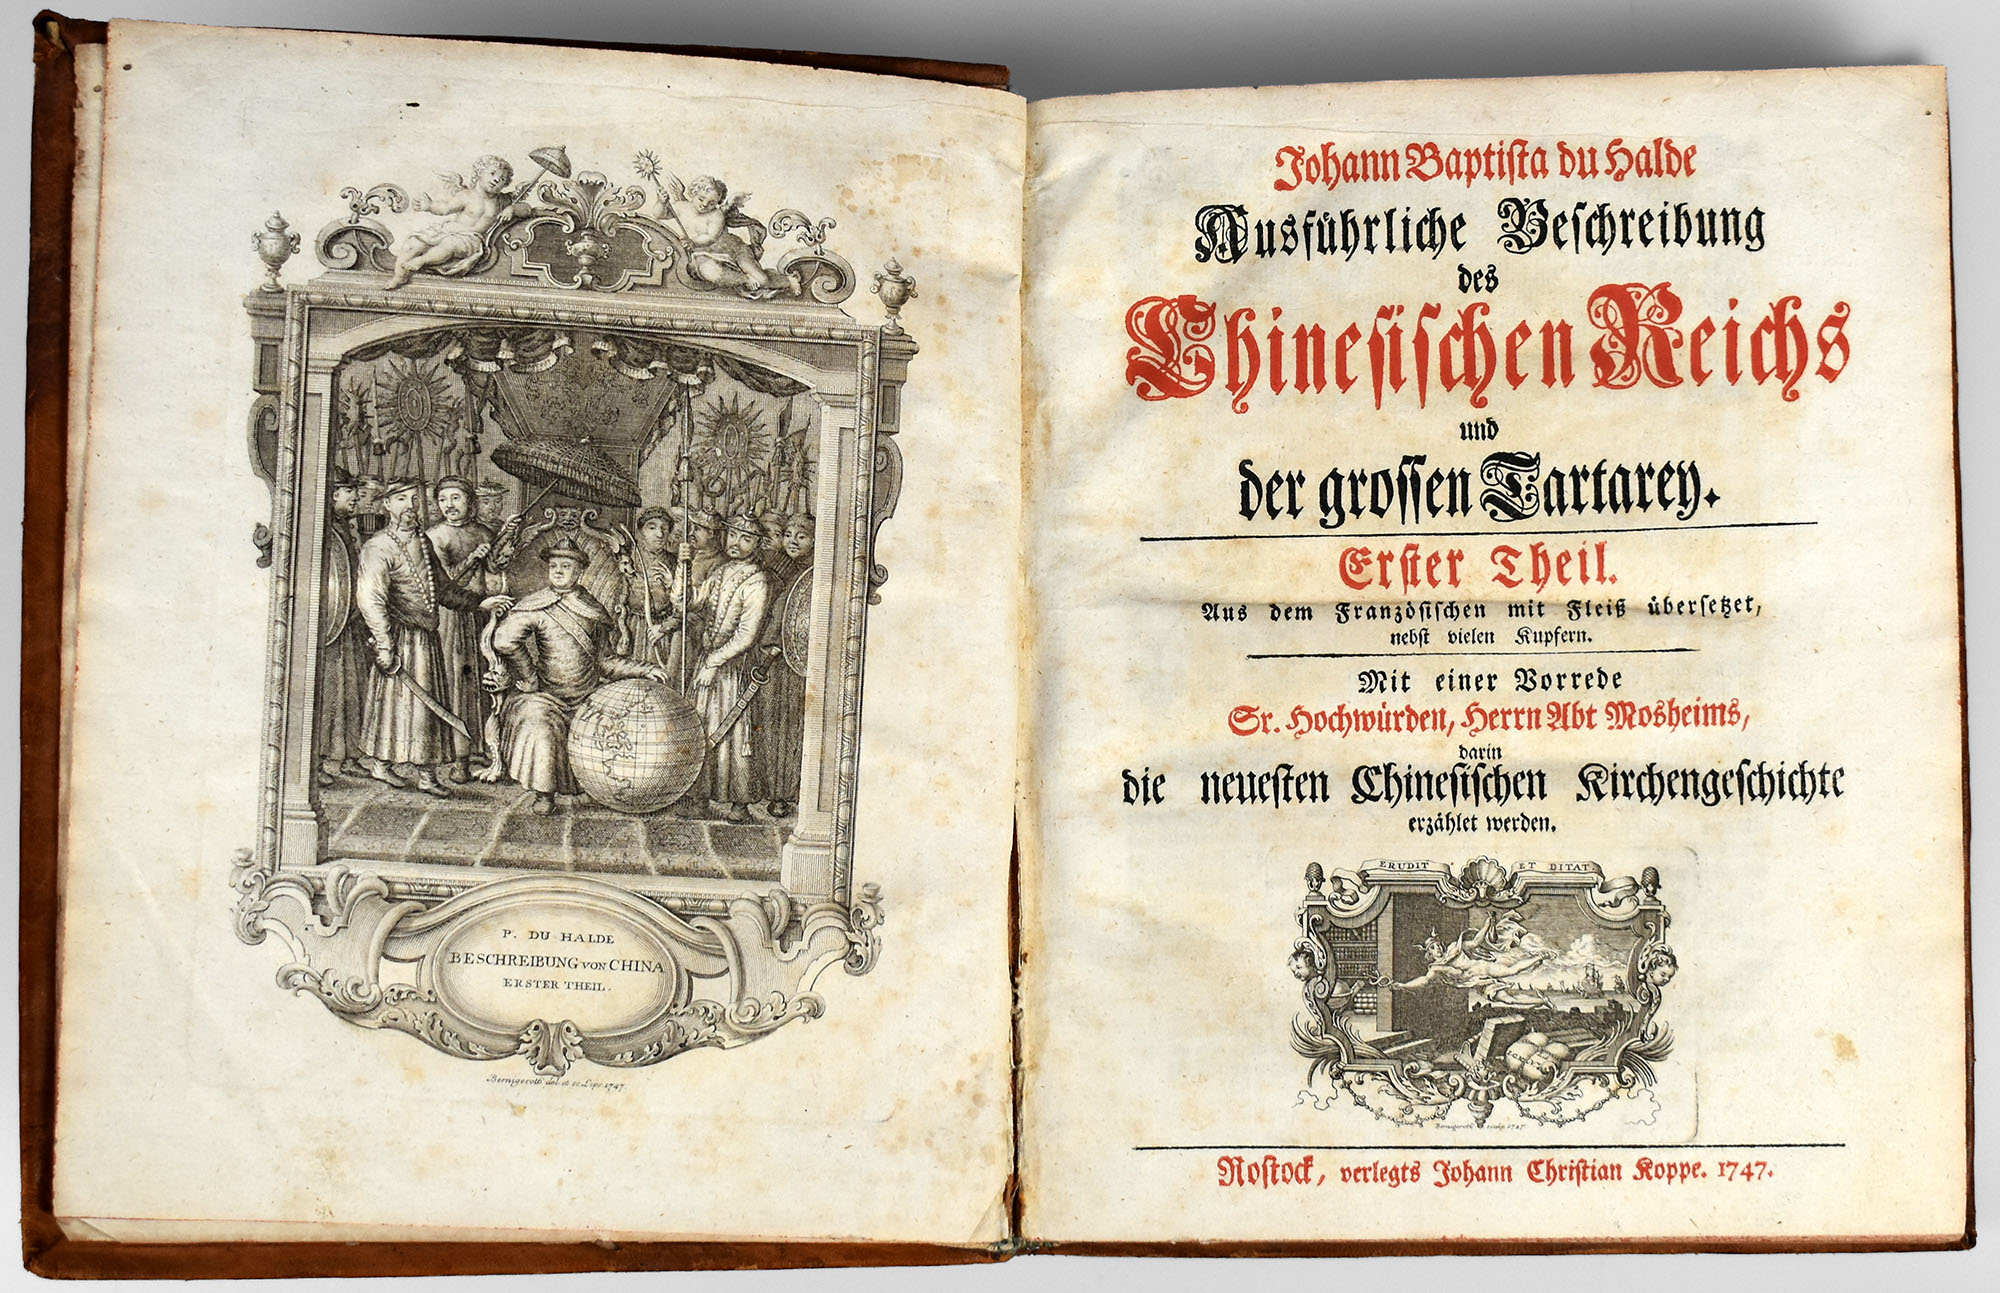 P. DU HALDE
BESCHREIBUNG VON CHINA
ERSTER THEIL.
Bernigeroth del. et sc. Lips. 1747.
Johann Baptista du Halde
Ausführliche Beschreibung
des
Chinesischen Reichs
und
der grossen Tartarey.
Erster Theil.
Aus dem Französischen mit Fleiß übersetzet,
nebst vielen Kupfern.
Mit einer Vorrede
Sr. Hochwürden, Herrn Abt Mosheims,
darin
die neuesten Chinesischen Kirchengeschichte
erzählet werden.
ERUDIT ET DITAT
Bernigeroth sculp. 1747.
Rostock, verlegts Johann Christian Koppe. 1747.